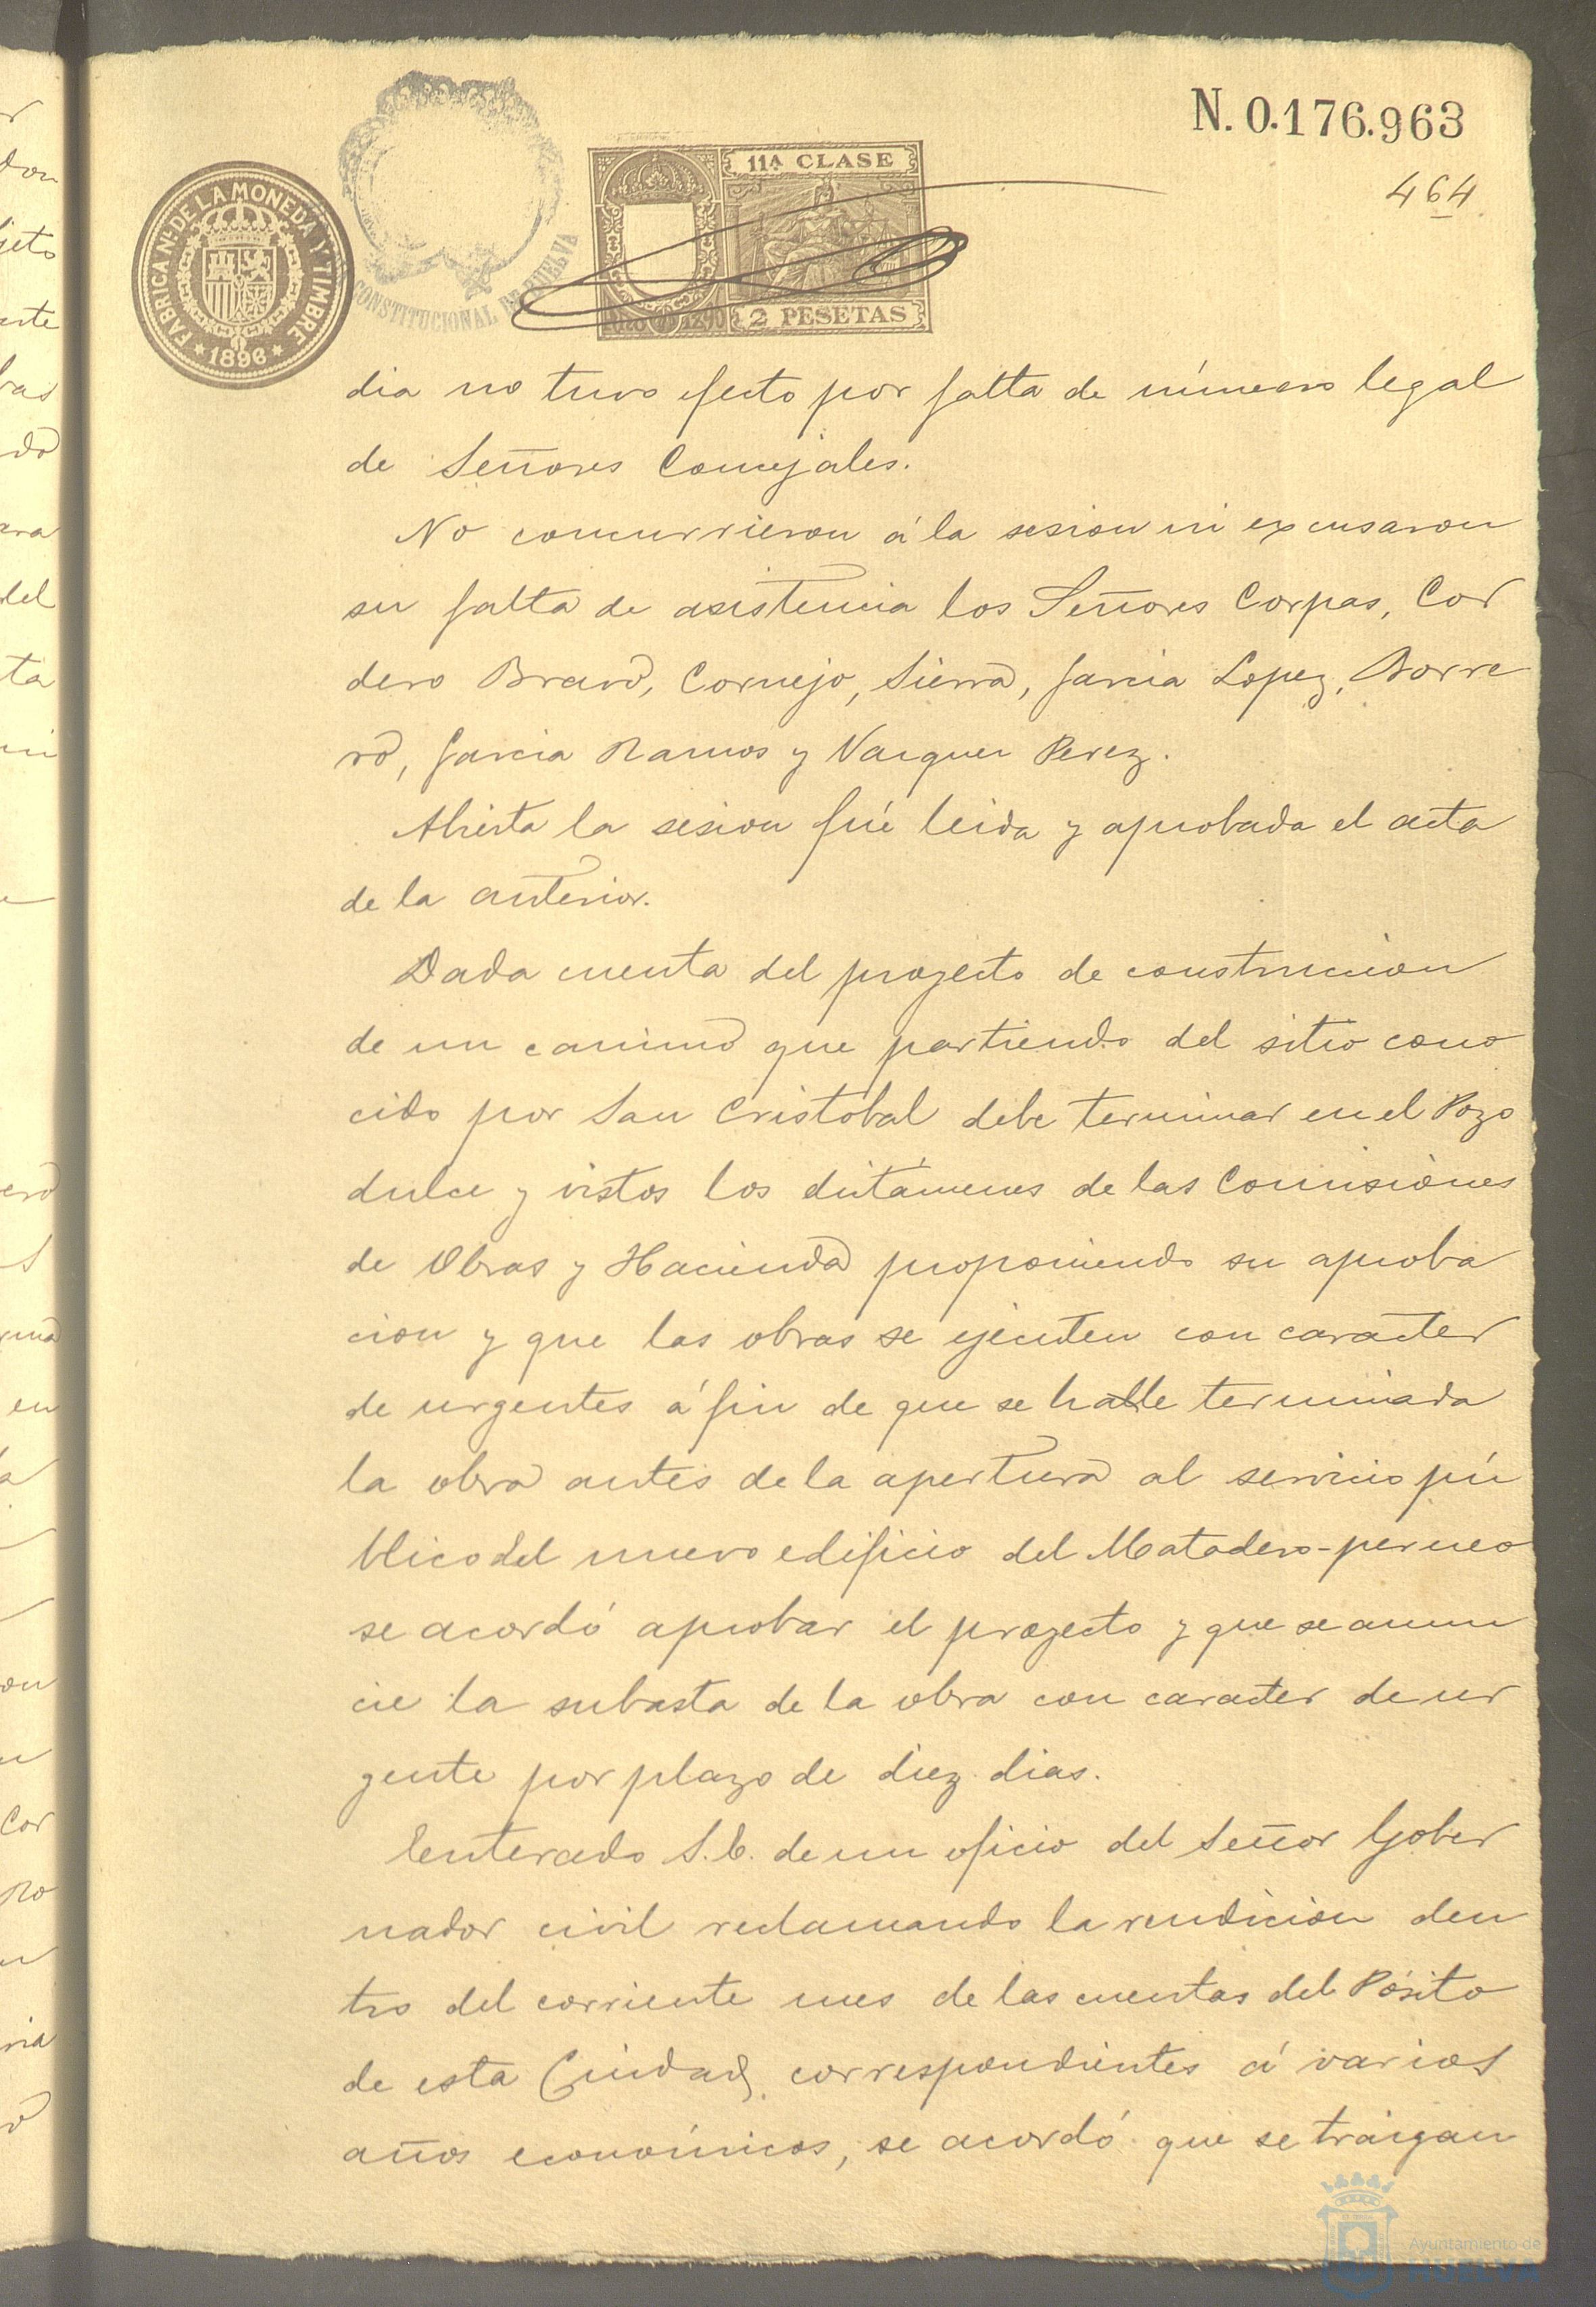 N. 0.176.963
464
11ª CLASE
FABRICA Nᴸ DE LA MONEDA Y TIMBRE
* 1896 *
CONSTITUCIONAL DE HUELVA
2 PESETAS
dia no tuvo efecto por falta de número legal
de Señores Concejales.
No concurrieron á la sesion ni excusaron
su falta de asistencia los Señores Corpas, Cor
dero Bravo, Cornejo, Sierra, Garcia Lopez, Borre
ro, Garcia Ramos y Vazquez Perez.
Abierta la sesion fué leida y aprobada el acta
de la anterior.
Dada cuenta del proyecto de construccion
de un camino que partiendo del sitio cono
cido por San Cristobal debe terminar en el Pozo
dulce y vistos los dictámenes de las Comisiones
de Obras y Hacienda proponiendo su aproba
cion y que las obras se ejecuten con caracter
de urgentes á fin de que se halle terminada
la obra antes de la apertura al servicio pú
blico del nuevo edificio del Matadero-perneo
se acordó aprobar el proyecto y que se anun
cie la subasta de la obra con caracter de ur
gente por plazo de diez dias.
Enterado S.E. de un oficio del Señor Gober
nador civil reclamando la rendicion den
tro del corriente mes de las cuentas del Pósito
de esta Ciudad, correspondientes á varios
años económicos, se acordó que se traigan
Ayuntamiento de
HUELVA